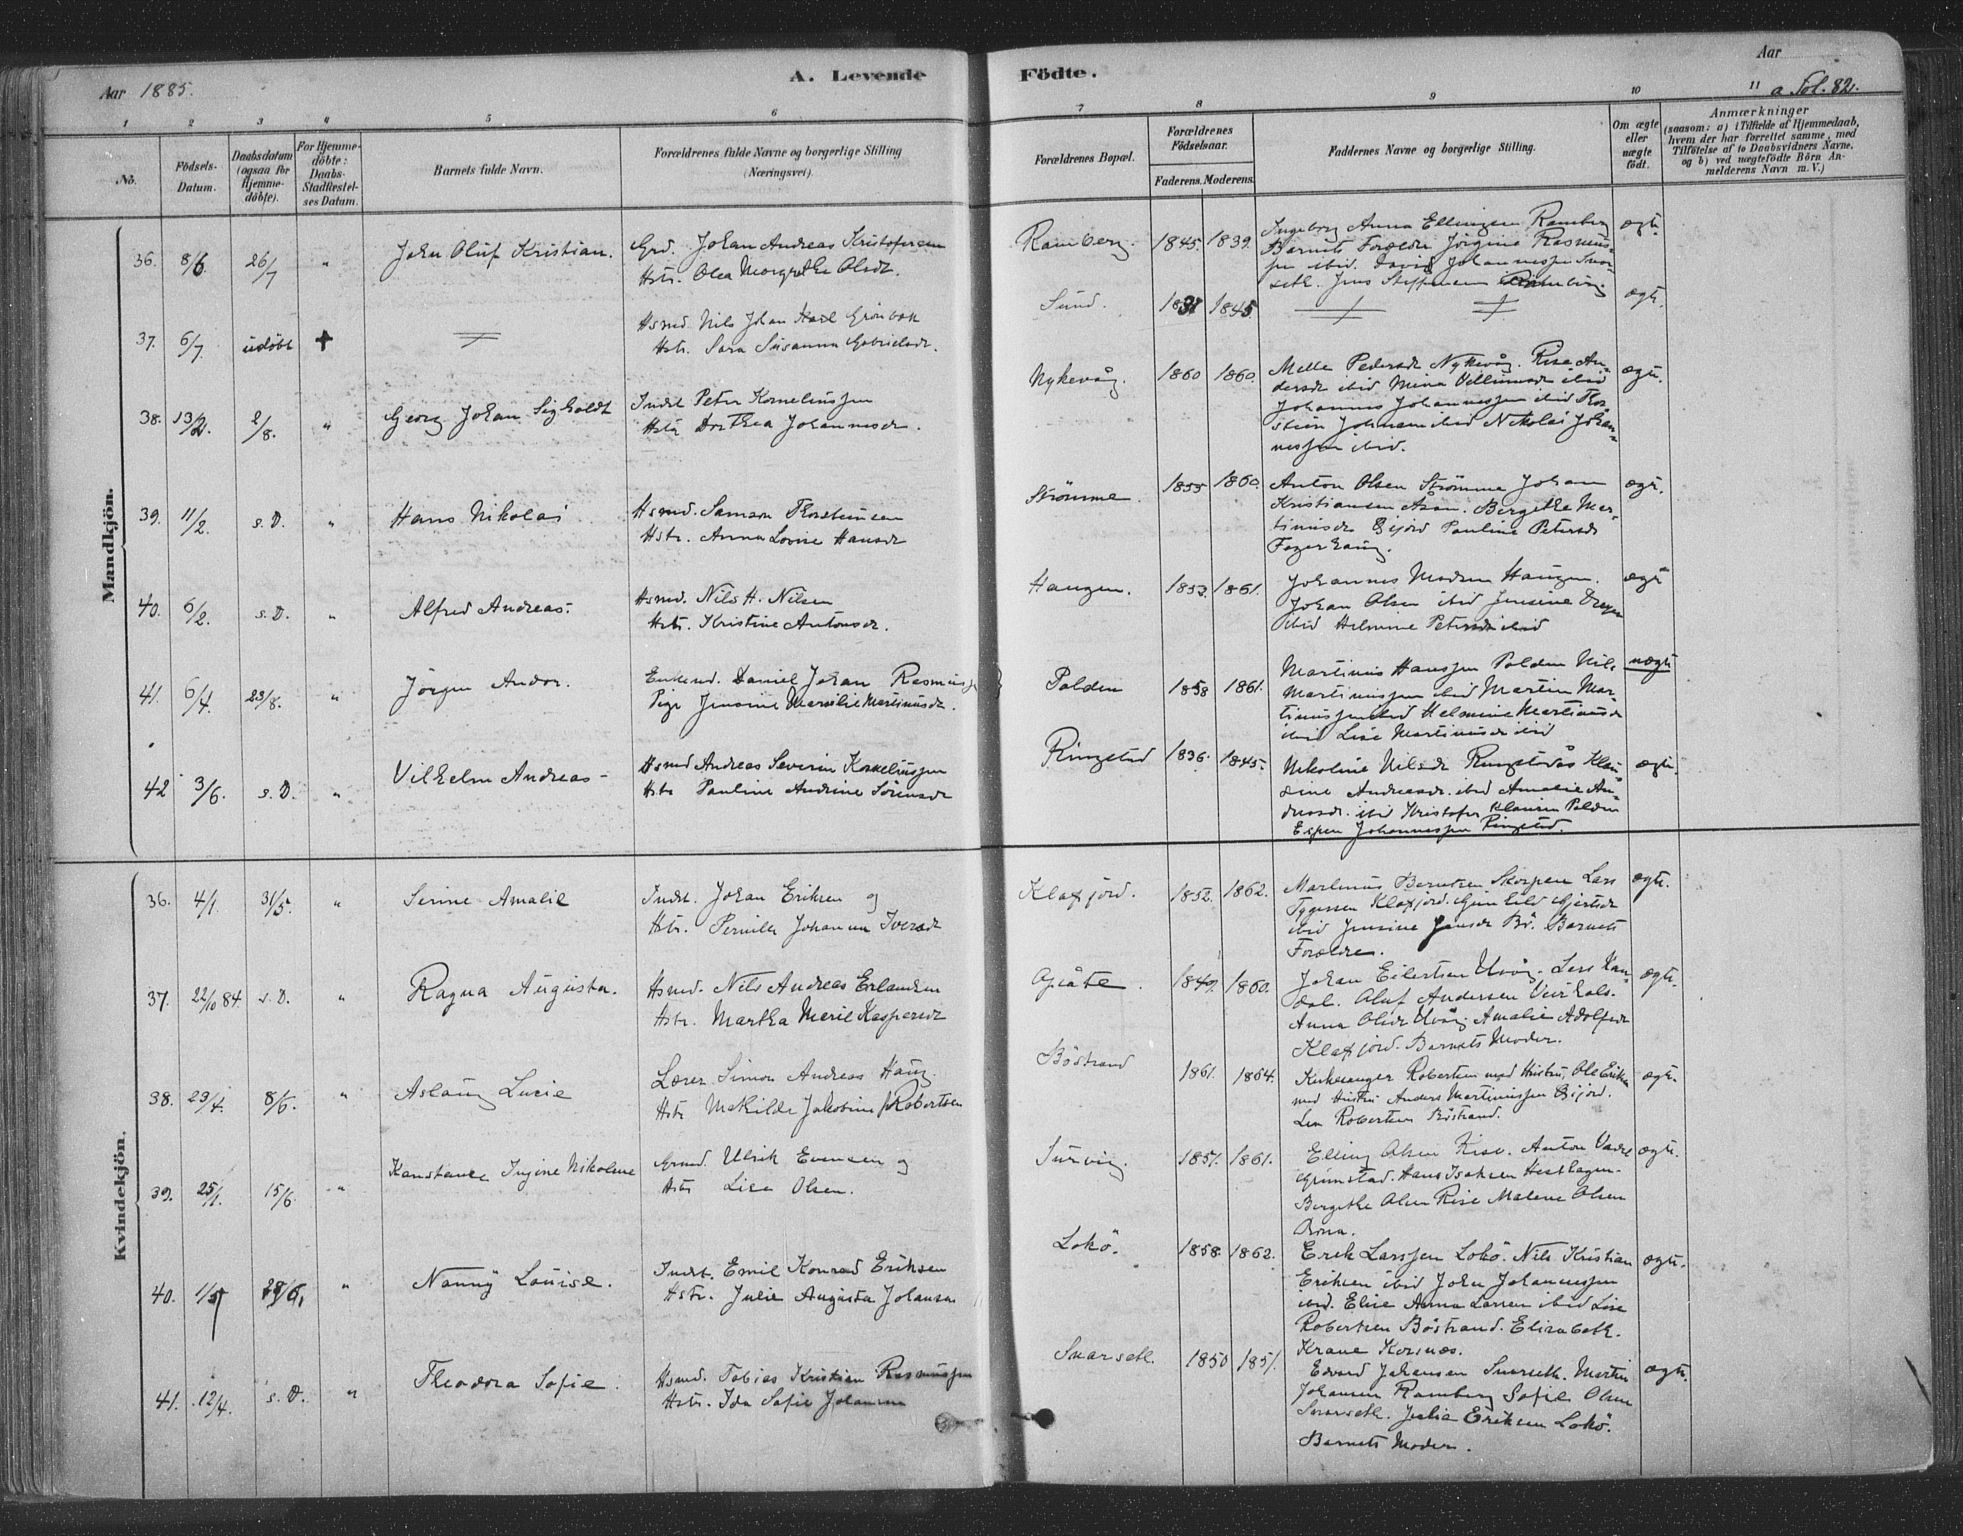 Aar 1885.
A. Levende Födte.
Aar
a Fol. 82.
1 2 3 4 5 6 7 8 9 10 11
No.
Födsels-Datum.
Daabsdatum (ogsaa for Hjemme-döbte).
For Hjemme-döbte: Daabs-Stadfæstel-ses Datum.
Barnets fulde Navn.
Forældrenes fulde Navne og borgerlige Stilling (Næringsvei).
Forældrenes Bopæl.
Forældrenes Födselsaar.
Faderens. Moderens.
Faddernes Navne og borgerlige Stilling.
Om ægte eller uægte födt.
Anmærkninger
(saasom: a) i Tilfælde af Hjemmedaab,
hvem der har forrettet samme, med
Tilföielse af to Daabsvidners Navne,
og b) ved uægtefödte Börn An-
melderens Navn m. V.)
Mandkjön.
36. 8/6 26/7 " John Oluf Kristian. Grd. Johan Andreas Kristofersen
Hstr. Olea Margrethe Olsdt.
Ramberg. 1845. 1839. Ingeborg Anna Ellingsen Ramberg
Barnets Forældre Jörgine Rasmus-
sen ibid. David Johannessen Snar-
seth. Jens Steffensen Ramberg
ægte.
37. 6/7 udöbt + Hsmd. Nils Johan Karl Grönbak
Hstr. Sara Susanna Gabrielsdt.
Sund. 1831 1845. ægte.
38. 13/2. 2/8. " Georg Johan Sigholdt Indst Peter Korneliussen
Hstr Dorthea Johannesdt.
Nykevåg. 1860 1860. Mette Pedersdt Nykevåg. Rise An-
dersdt ibid Mina Villumsdt ibid
Johannes Johannessen ibid Thor-
stein Johnsen ibid Nikolai Johan-
nessen ibid.
ægte.
39. 11/2. s. D. " Hans Nikolai Hsmd. Samson Thorsteinsen
Hstr. Anna Lovise Hansdt
Strömme. 1855 1860. Anton Olsen Strömme Johan
Kristiansen Åsan. Bergethe Mar-
tinusdt Gjörd Pauline Petersdt
ægte.
40. 6/2. s. D. " Alfred Andreas. Hsmd. Nils H. Nilsen
Hstr. Kristine Antonsdt.
Haugen. 1853. 1861. Johannes Madsen Haugen.
Johan Olsen ibid Jensine Dreyer
ibid Helmine Petersdt ibid
ægte
41. 6/4. 23/8. " Jörgen Andor. Enkemd. Daniel Johan Rasmussen
Pige Jensine Marselie Martinusdt.
Polden 1858 1861. Martinus Hanssen Polden Nils
Martinussen ibid Martin Mar-
tinussen ibid Helmine Martinusdt
ibid Lise Martinusdt ibid
uægte
42 3/6. s. D. " Vilhelm Andreas Hsmd Andreas Severin Korneliussen
Hstr Pauline Andrine Sörensdt
Ringstad 1836. 1845. Nikoline Nilsdt Ringstad Klau-
sine Andreasdt. ibid Amalie An-
dreasdt. ibid Kristofer Klausen Polden
Espen Johannessen Ringstad.
ægte.
Kvindekjön.
36. 4/1. 31/5. " Serine Amalie Indst. Johan Eriksen og
Hstr. Pernille Johanna Iversdt
Klaksjord. 1852. 1862. Martinus Berntsen Skorpen Lars
Tygesen Klaksjord. Gunhild Gjertsdt
ibid Jensine Jensdt Bö. Barnets
Forældre.
ægte.
37. 22/10 84 s. D. " Ragna Augusta. Hsmd. Nils Andreas Erlandsen
Hstr. Martha Marie Kaspersdt
1849. 1860. Johan Eilertsen Uvåg. Lars Kan-
dal. Oluf Andersen Veirhals.
Anna Olsdt Uvåg. Amalie Adolfsdt
Klaksjord. Barnets Moder.
ægte.
38. 23/4. 8/6. " Aslaug Lucie Lærer Simon Andreas Haug.
Hstr Mathilde Jakobine Robertsen
Böstrand 1861. 1864. Kirkesanger Robertsen med Hustru, Ole Eriksen
med Hustru Anders Martinussen Gjörd.
Lea Robertsen Böstrand.
ægte.
39. 25/1. 15/6. " Konstance Ingine Nikoline Grmd. Ulrik Evensen og
Hstr Lise Olsen.
Surving. 1851. 1861. Elling Olsen Rise. Anton
Grimstad. Hans Isaksen Hesthagen.
Bergethe Olsen Rise Malene Olsen
ægte.
40. 1/5 29/6. " Nanny Lovise. Indst. Emil Konrad Eriksen
Hstr. Julie Augusta Johansen
Lokö. 1858. 1862. Erik Larssen Lokö. Nils Kristian
Eriksen ibid John Johannessen
ibid. Elise Anna Larsen ibid Lise
Robertsen Böstrand. Elisabeth
Krane Korsnæs.
ægte.
41. 12/4. s. D. " Theodora Sofie. Hsmd. Tobias Kristian Rasmussen
Hstr. Ida Sofie Johansen
Snarseth. 1850 1851. Edvard Johansen Snarseth. Martin
Johansen Ramberg Sofie Olsen
Snarseth. Julie Eriksen Lokö.
Barnets Moder.
ægte.